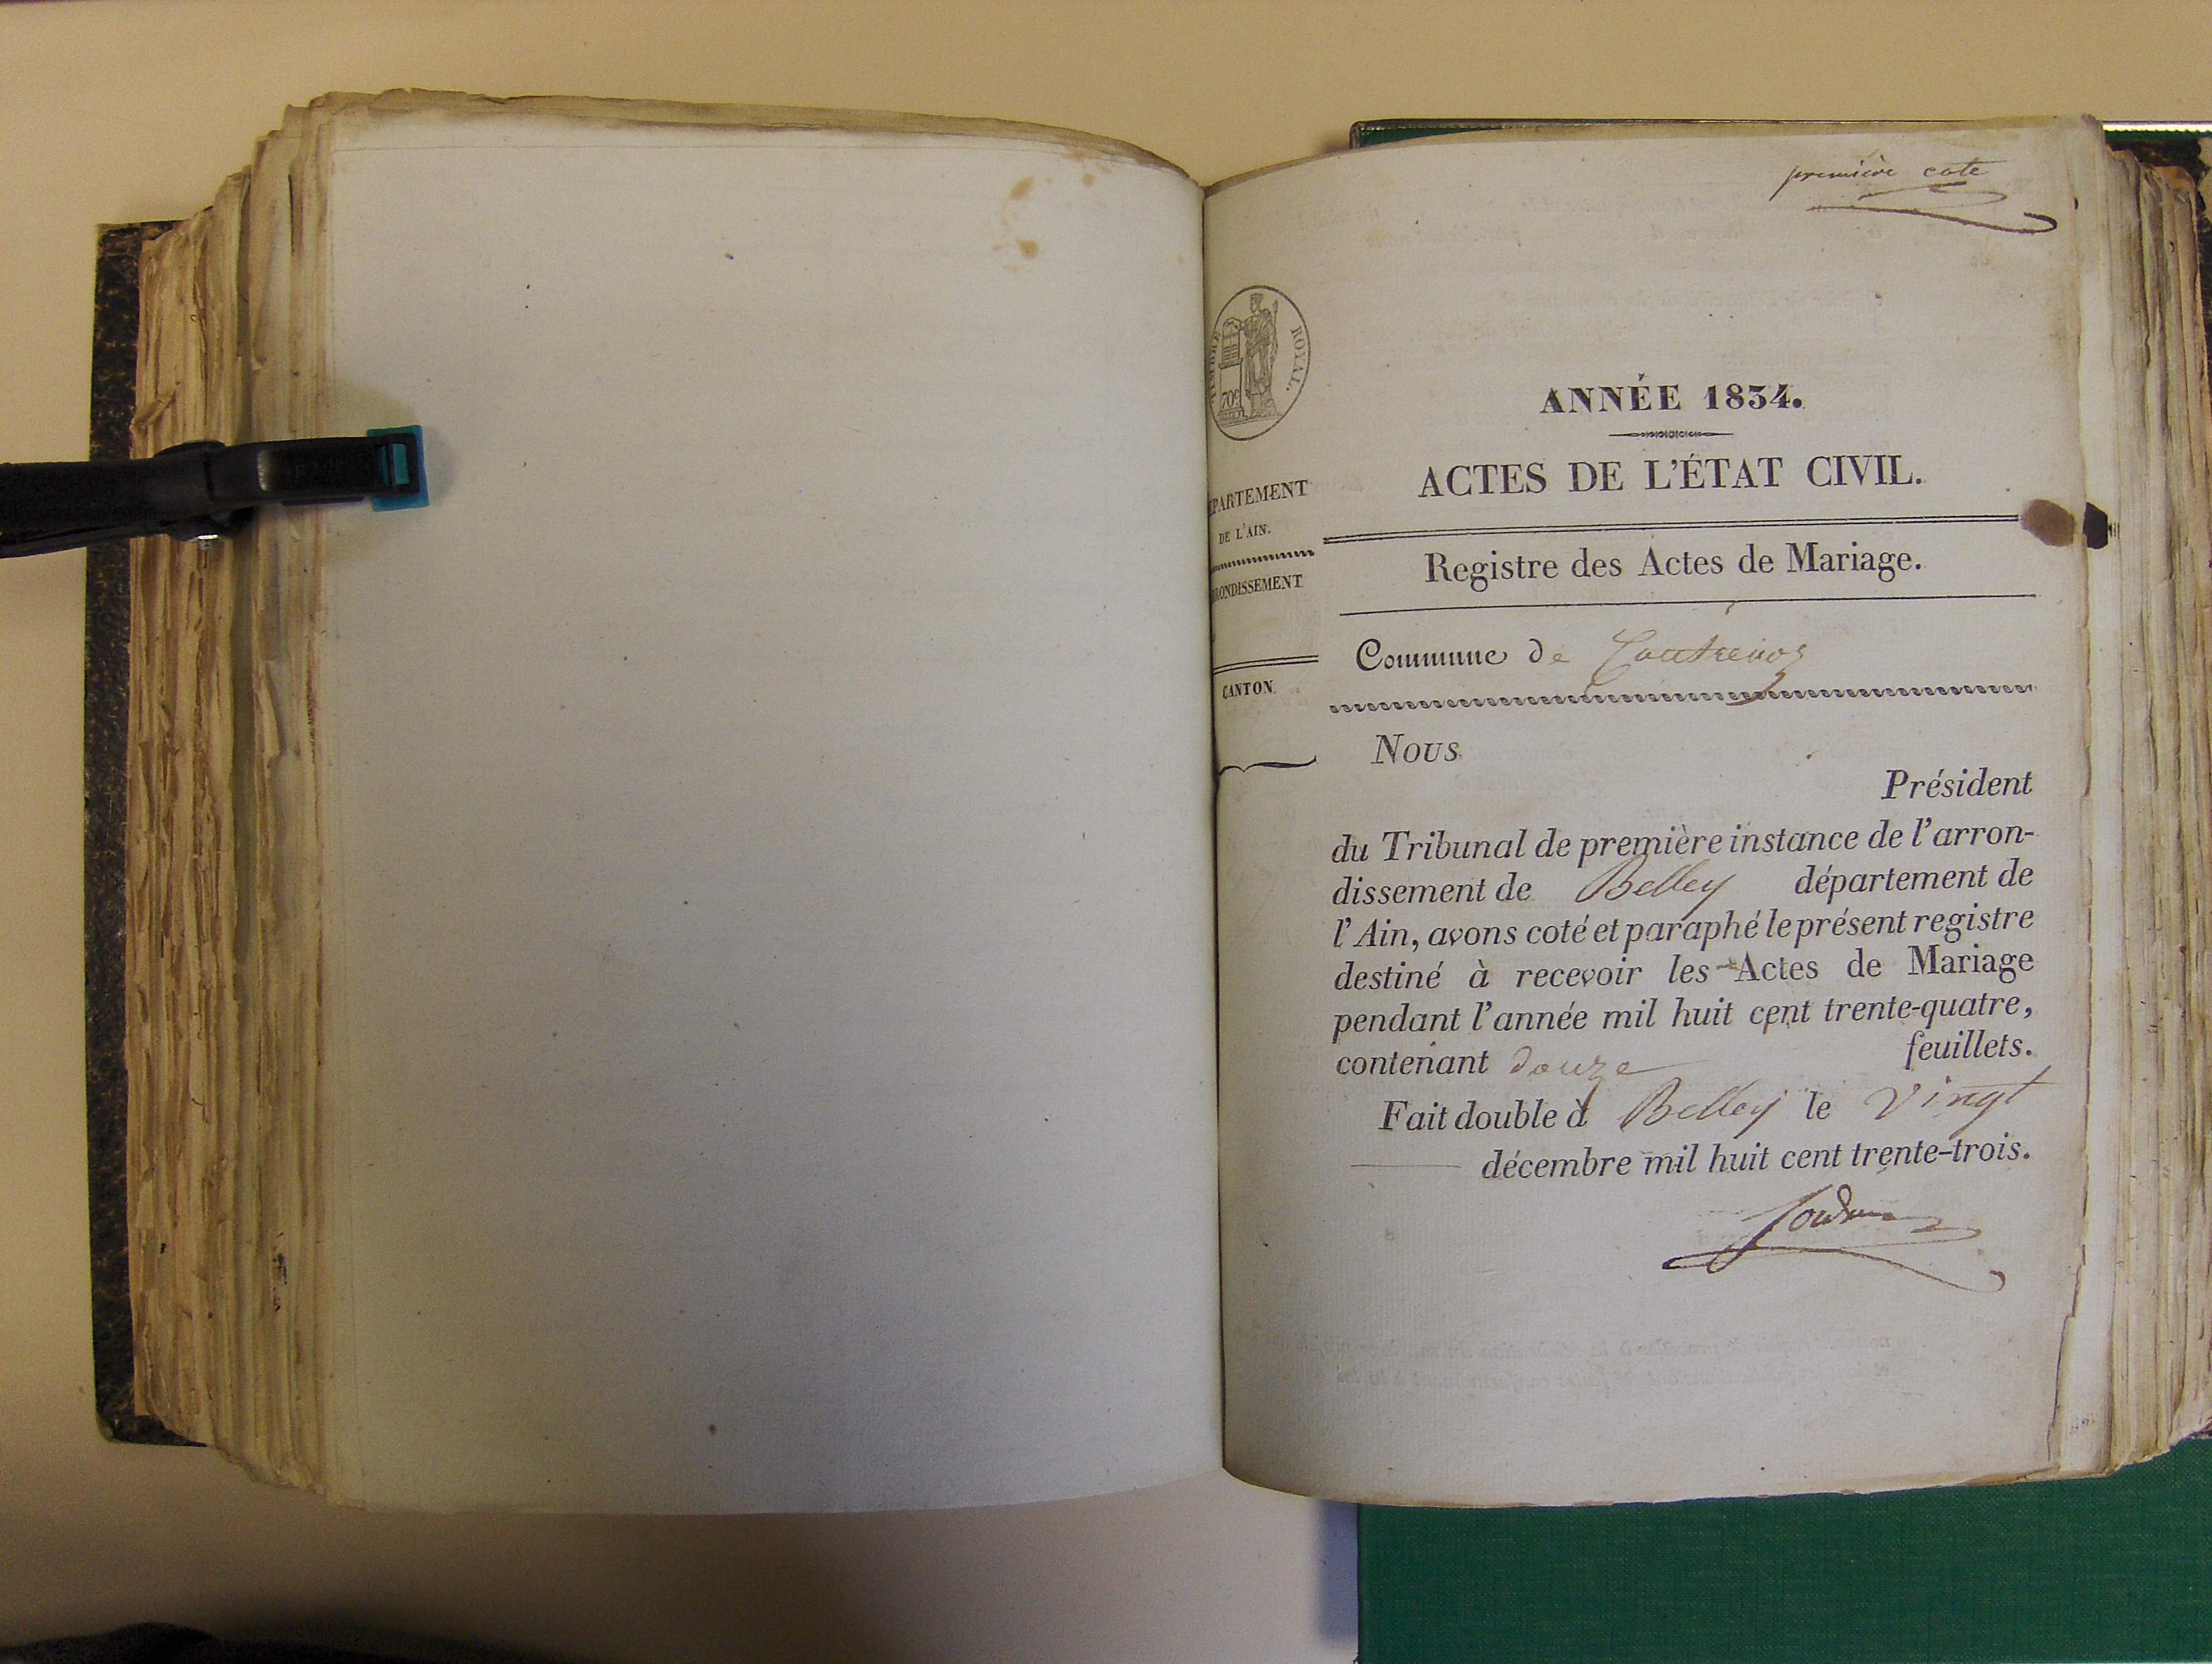 première cote
TIMBRE ROYAL.
70c
ANNÉE 1834.
ACTES DE L'ÉTAT CIVIL.
EPARTEMENT
DE L'AIN.
RONDISSEMENT
CANTON
Registre des Actes de Mariage.
Commune de Contrevoz
Nous
Président
du Tribunal de première instance de l'arron-
dissement de Belley département de
l'Ain, avons coté et paraphé le présent registre
destiné à recevoir les Actes de Mariage
pendant l'année mil huit cent trente-quatre,
contenant douze feuillets.
Fait double à Belley le vingt
décembre mil huit cent trente-trois.